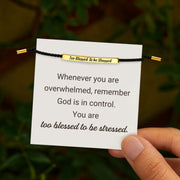 Too Blessed To be Stressed
Whenever you are
overwhelmed, remember
God is in control.
You are
too blessed to be stressed.